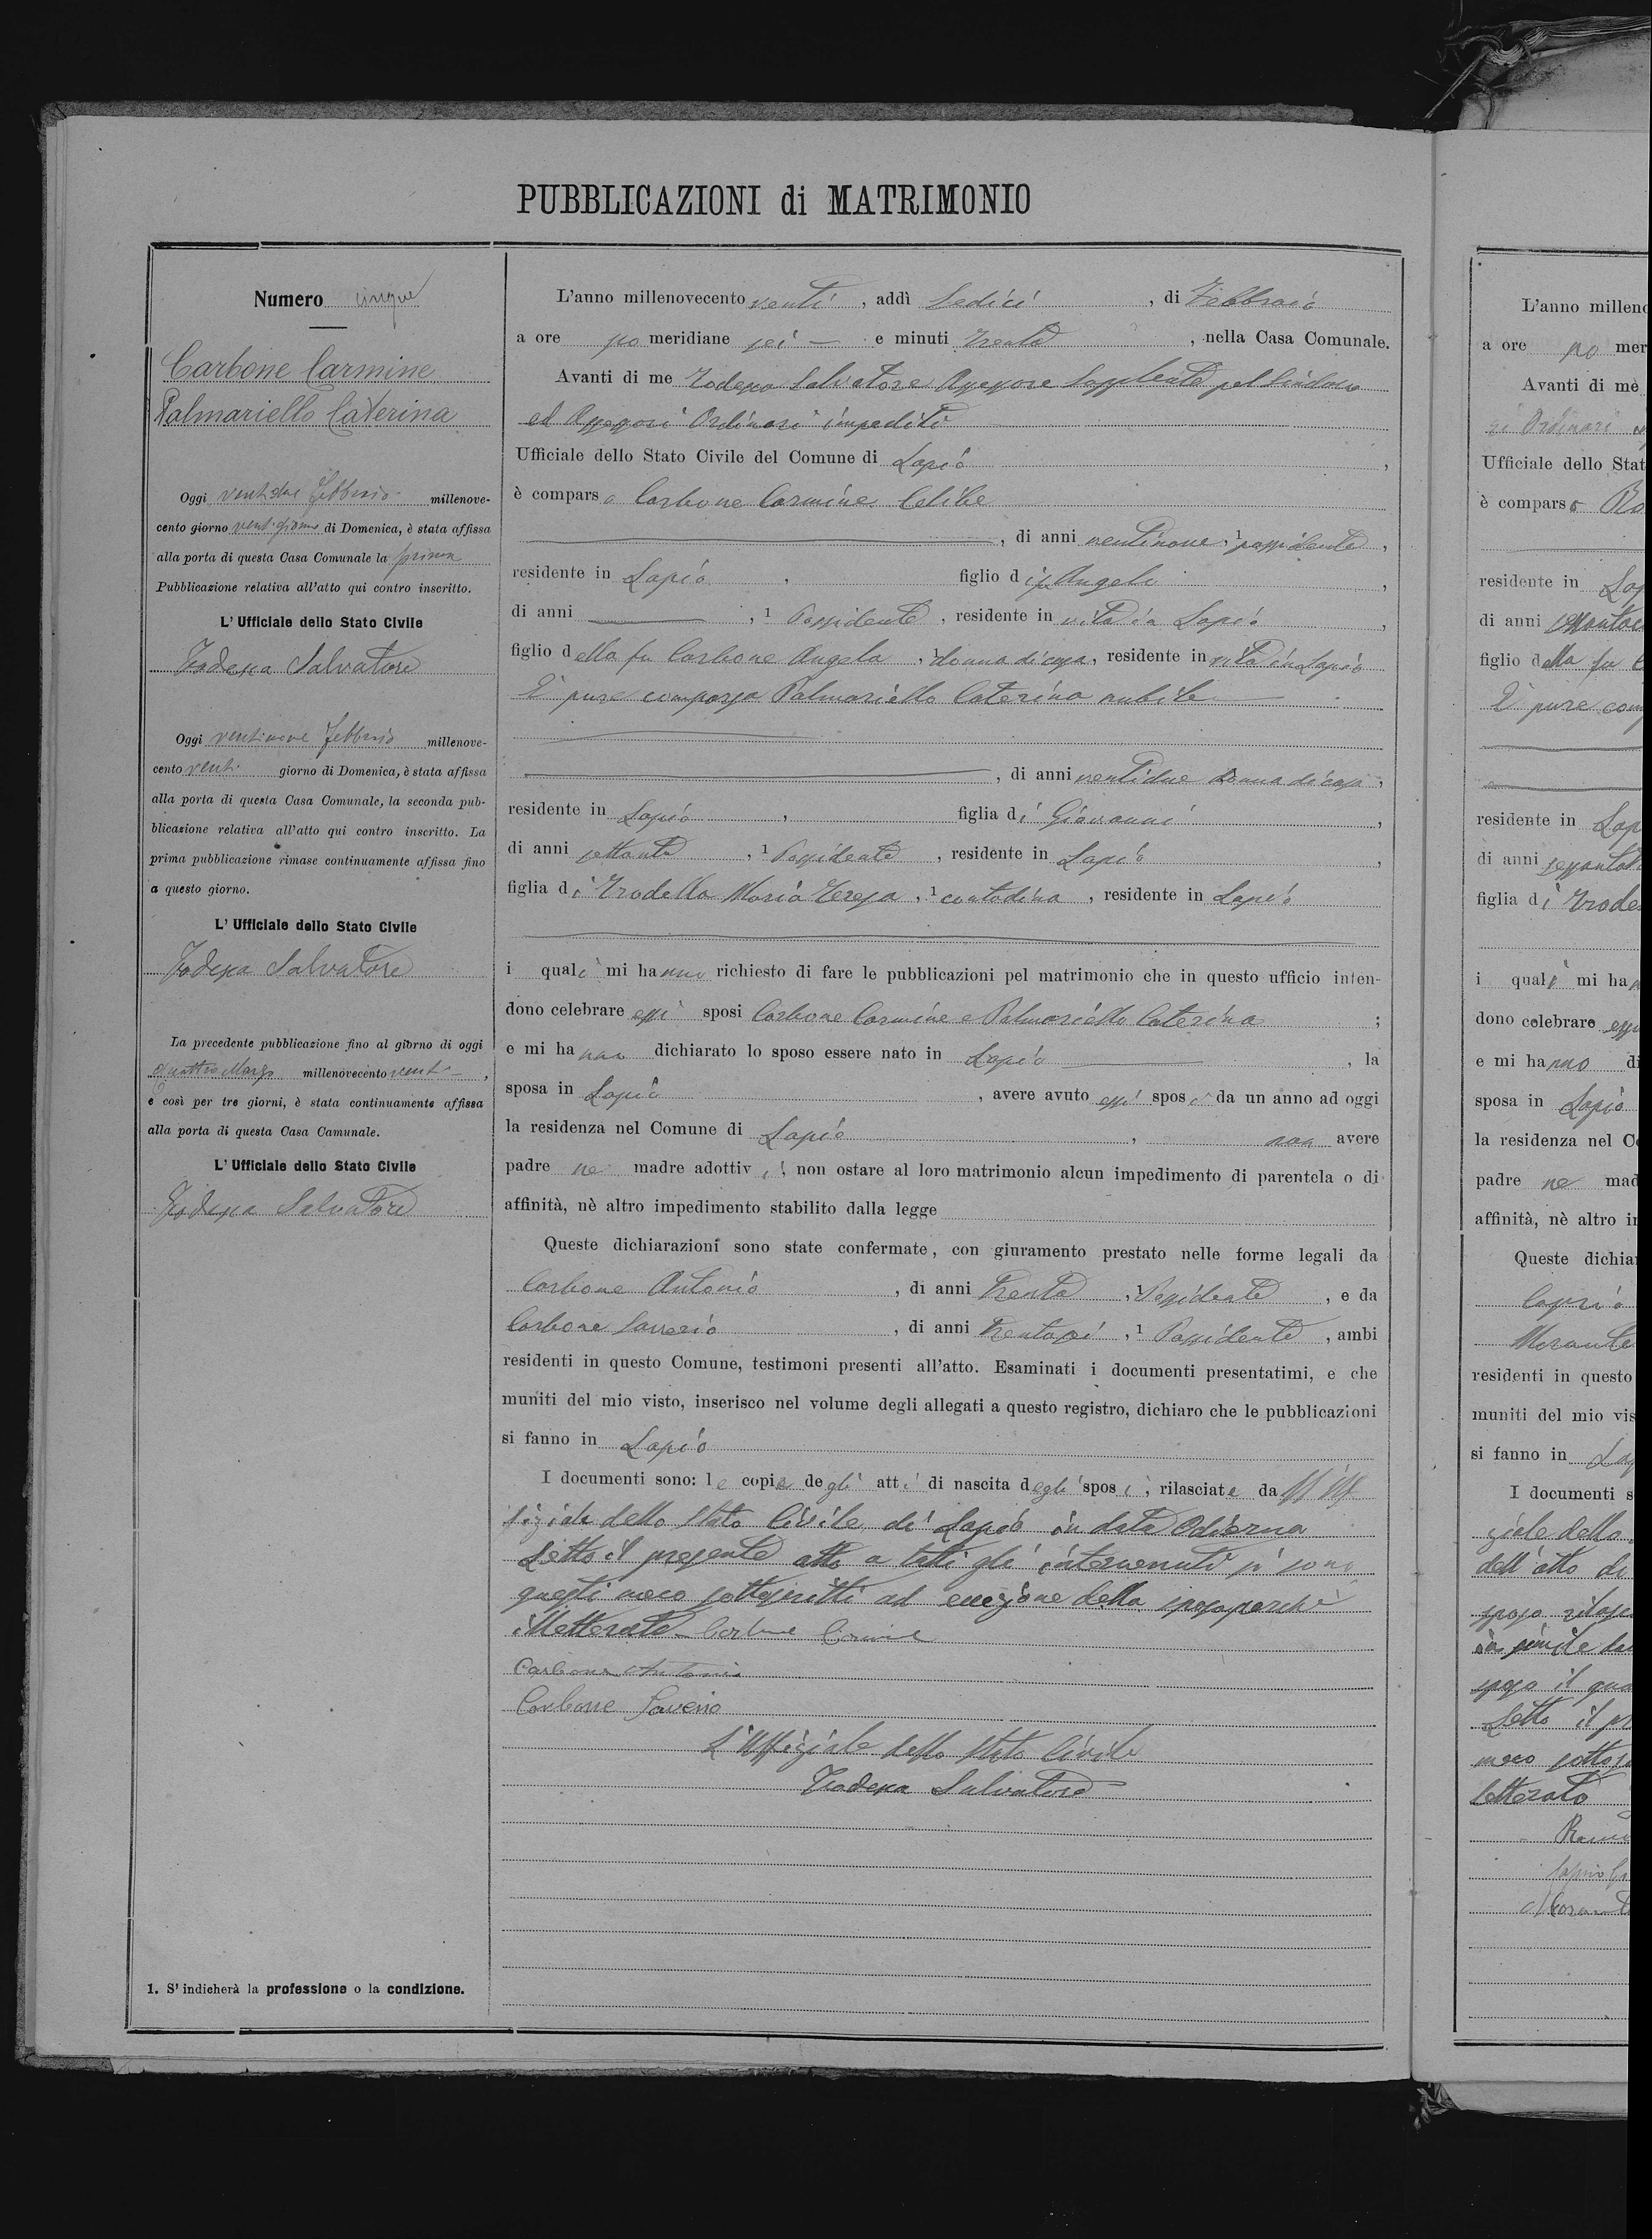 PUBBLICAZIONI di MATRIMONIO
Numero cinque
Carbone Carmine
Palmariello Caterina
Oggi ventidue Febbraio millenove-
cento giorno di Domenica, è stata affissa
alla porta di questa Casa Comunale la prima
Pubblicazione relativa all'atto qui contro inscritto.
L'Ufficiale dello Stato Civile
Salvatore
Oggi ventinove Febbraio millenove-
cento venti giorno di Domenica, è stata affissa
alla porta di questa Casa Comunale, la seconda pub-
blicazione relativa all'atto qui contro inscritto. La
prima pubblicazione rimase continuamente affissa fino
a questo giorno.
L'Ufficiale dello Stato Civile
Salvatore
La precedente pubblicazione fino al giorno di oggi
quattro Marzo millenovecento venti,
e così per tre giorni, è stata continuamente affissa
alla porta di questa Casa Camunale.
L'Ufficiale dello Stato Civile
Salvatore
1. S'indicherà la professione o la condizione.
L'anno millenovecento venti, addì Sedici, di Febbraio
a ore pomeridiane sei e minuti trenta, nella Casa Comunale.
Avanti di me Salvatore Assessore Supplente pel Sindaco
ed Assessori Ordinari impediti
Ufficiale dello Stato Civile del Comune di Lapio,
è comparso Carbone Carmine Celibe
, di anni ventinove, 1 possidente,
residente in Lapio, figlio di Angelo,
di anni , 1 Possidente, residente in vita in Lapio,
figlio della fu Carbone Angela, 1 donna di casa, residente in vita in Lapio
È pure comparsa Palmariello Caterina nubile
, di anni ventidue donna di casa,
residente in Lapio, figlia di Giovanni,
di anni settanta, 1 Possidente, residente in Lapio,
figlia di Trodella Maria Teresa, 1 contadina, residente in Lapio
i quali mi hanno richiesto di fare le pubblicazioni pel matrimonio che in questo ufficio inten-
dono celebrare essi sposi Carbone Carmine e Palmariello Caterina;
e mi hanno dichiarato lo sposo essere nato in Lapio, la
sposa in Lapio, avere avuto essi sposi da un anno ad oggi
la residenza nel Comune di Lapio, non avere
padre ne madre adottivi, non ostare al loro matrimonio alcun impedimento di parentela o di
affinità, nè altro impedimento stabilito dalla legge
Queste dichiarazioni sono state confermate, con giuramento prestato nelle forme legali da
Carbone Antonio, di anni Trenta, 1 Possidente, e da
Carbone Saverio, di anni Trentasei, 1 Possidente, ambi
residenti in questo Comune, testimoni presenti all'atto. Esaminati i documenti presentatimi, e che
muniti del mio visto, inserisco nel volume degli allegati a questo registro, dichiaro che le pubblicazioni
si fanno in Lapio
I documenti sono: le copie degli atti di nascita degli sposi, rilasciate da
dello Stato Civile di Lapio in data Odierna
Letto il presente atto a tutti gli intervenuti si sono
questi meco sottoscritti ad eccezione della sposa perchè
illetterata Carbone Carmine
Carbone Antonio
Carbone Saverio
L'Uffiziale dello Stato Civile
Salvatore
L'anno milleno
a ore po mer
Avanti di me
Ufficiale dello Stat
è comparso
residente in Lap
di anni
figlio della fu
È pure com
residente in Lap
di anni
figlia di
i quali mi ha
dono celebrare
e mi hanno di
sposa in Lapio
la residenza nel Co
padre ne mad
affinità, nè altro in
Queste dichiar
residenti in questo
muniti del mio vis
si fanno in Lap
I documenti s
dell'atto di
Letto il pr